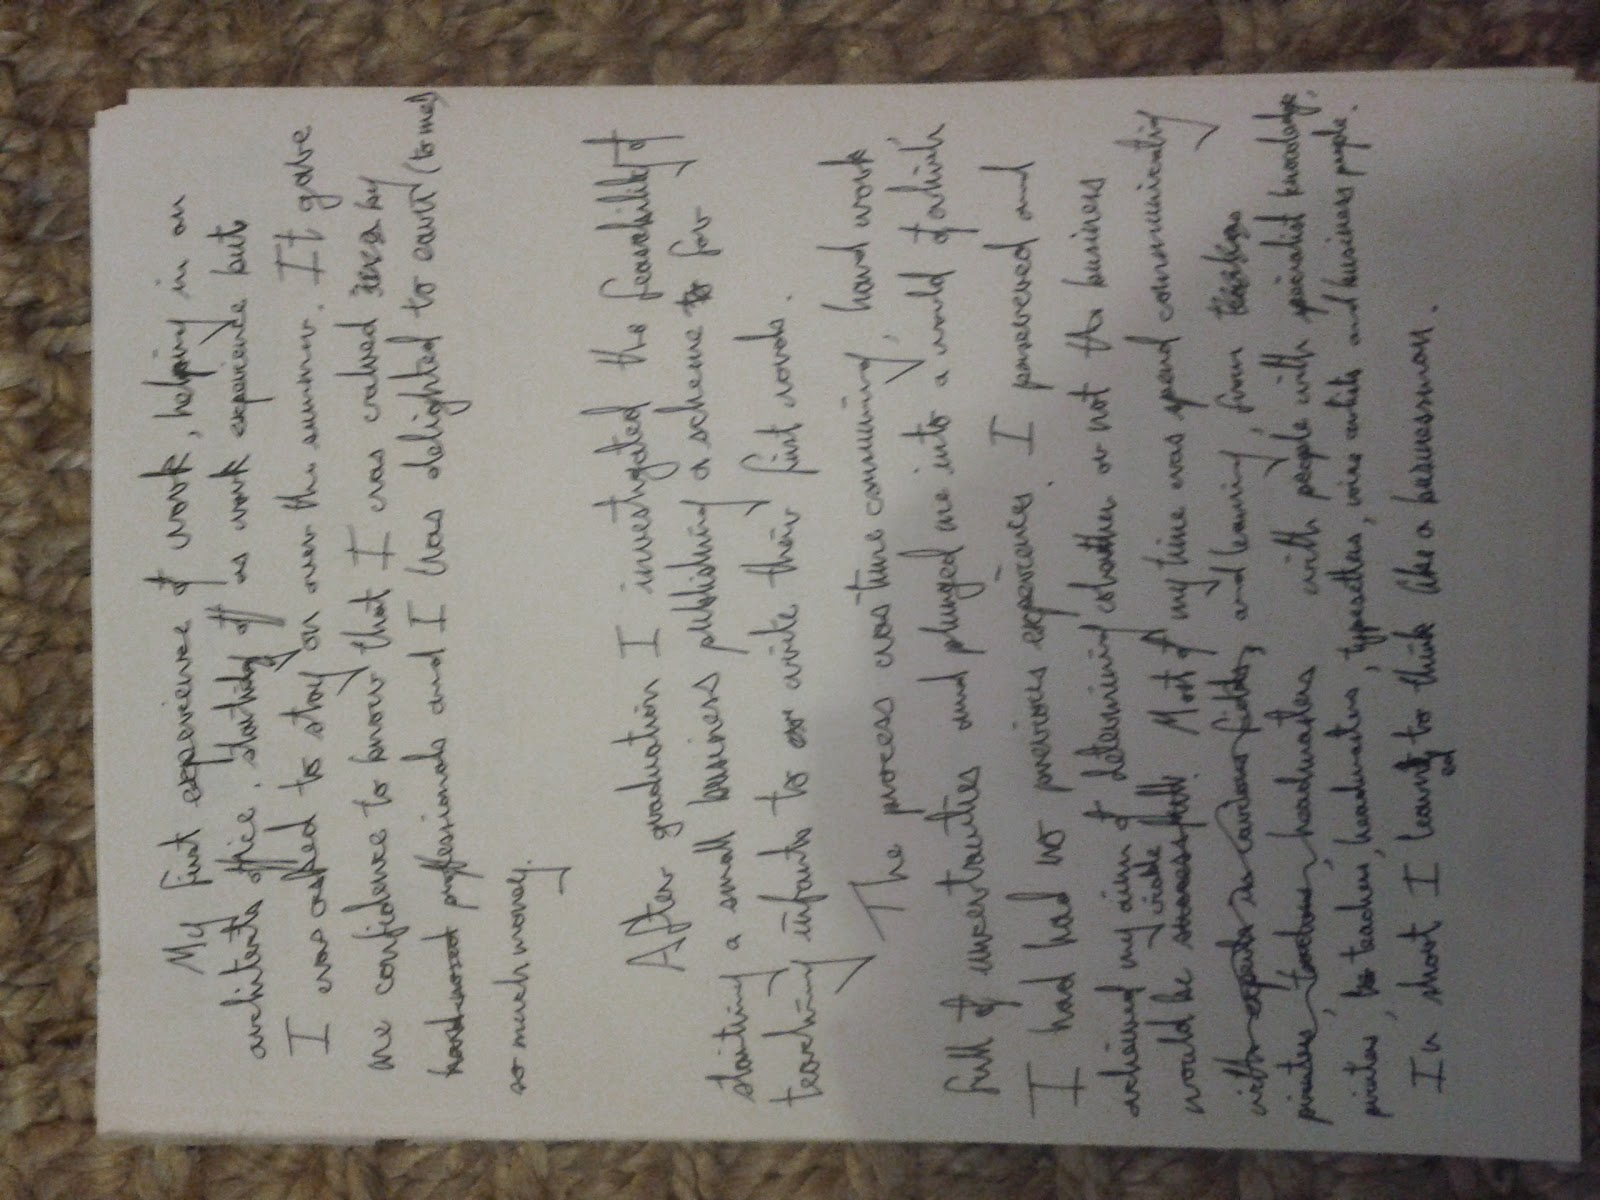 My first experience of work, helping in an
architects office. Starting off as work experience but
I was asked to stay on over the summer. It gave
me confidence to know that I was valued by
professionals and I was delighted to earn (to me)
so much money.
After graduation I investigated the feasibility of
starting a small business publishing a scheme for
teaching infants to write their first words.
The process was time consuming, hard work
full of uncertainties and plunged me into a world of which
I had had no previous experience. I persevered and
achieved my aim of determining whether or not the business
would be viable Most of my time was spend communicating
with experts in various fields, and learning, from
printers, teachers, headmasters with people with specialist knowledge,
printers, teachers, headmasters, typesetters, and business people.
In short I learned to think like a businessman.